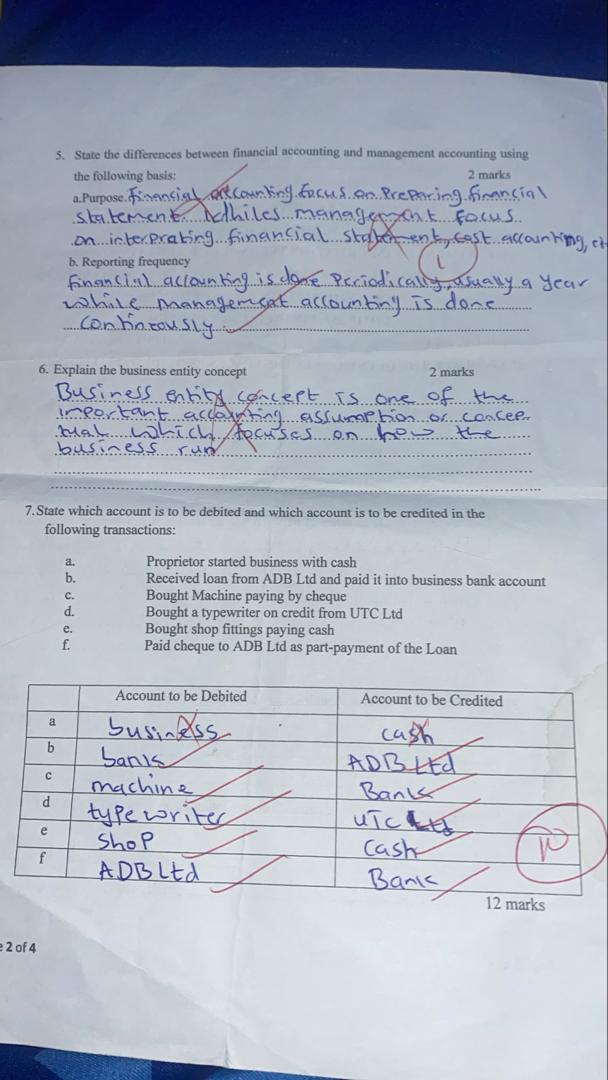 5. State the differences between financial accounting and management accounting using
the following basis: 2 marks
a.Purpose. Financial accounting focus on Preparing financial
statement. Whiles management focus
on interprating financial statement, cost accounting, etc
1
b. Reporting frequency
financial accounting is done Periodically, usually a year
while management accounting is done
continously
6. Explain the business entity concept 2 marks
Business entity concept is one of the
important accounting assumption or concep
tual which focuses on how the
business run
7. State which account is to be debited and which account is to be credited in the
following transactions:
a. Proprietor started business with cash
b. Received loan from ADB Ltd and paid it into business bank account
c. Bought Machine paying by cheque
d. Bought a typewriter on credit from UTC Ltd
e. Bought shop fittings paying cash
f. Paid cheque to ADB Ltd as part-payment of the Loan
Account to be Debited Account to be Credited
a business cash
b bank ADB Ltd
c machine Bank
d typewriter UTC Ltd
e Shop Cash
f ADB Ltd Bank
10
12 marks
2 of 4